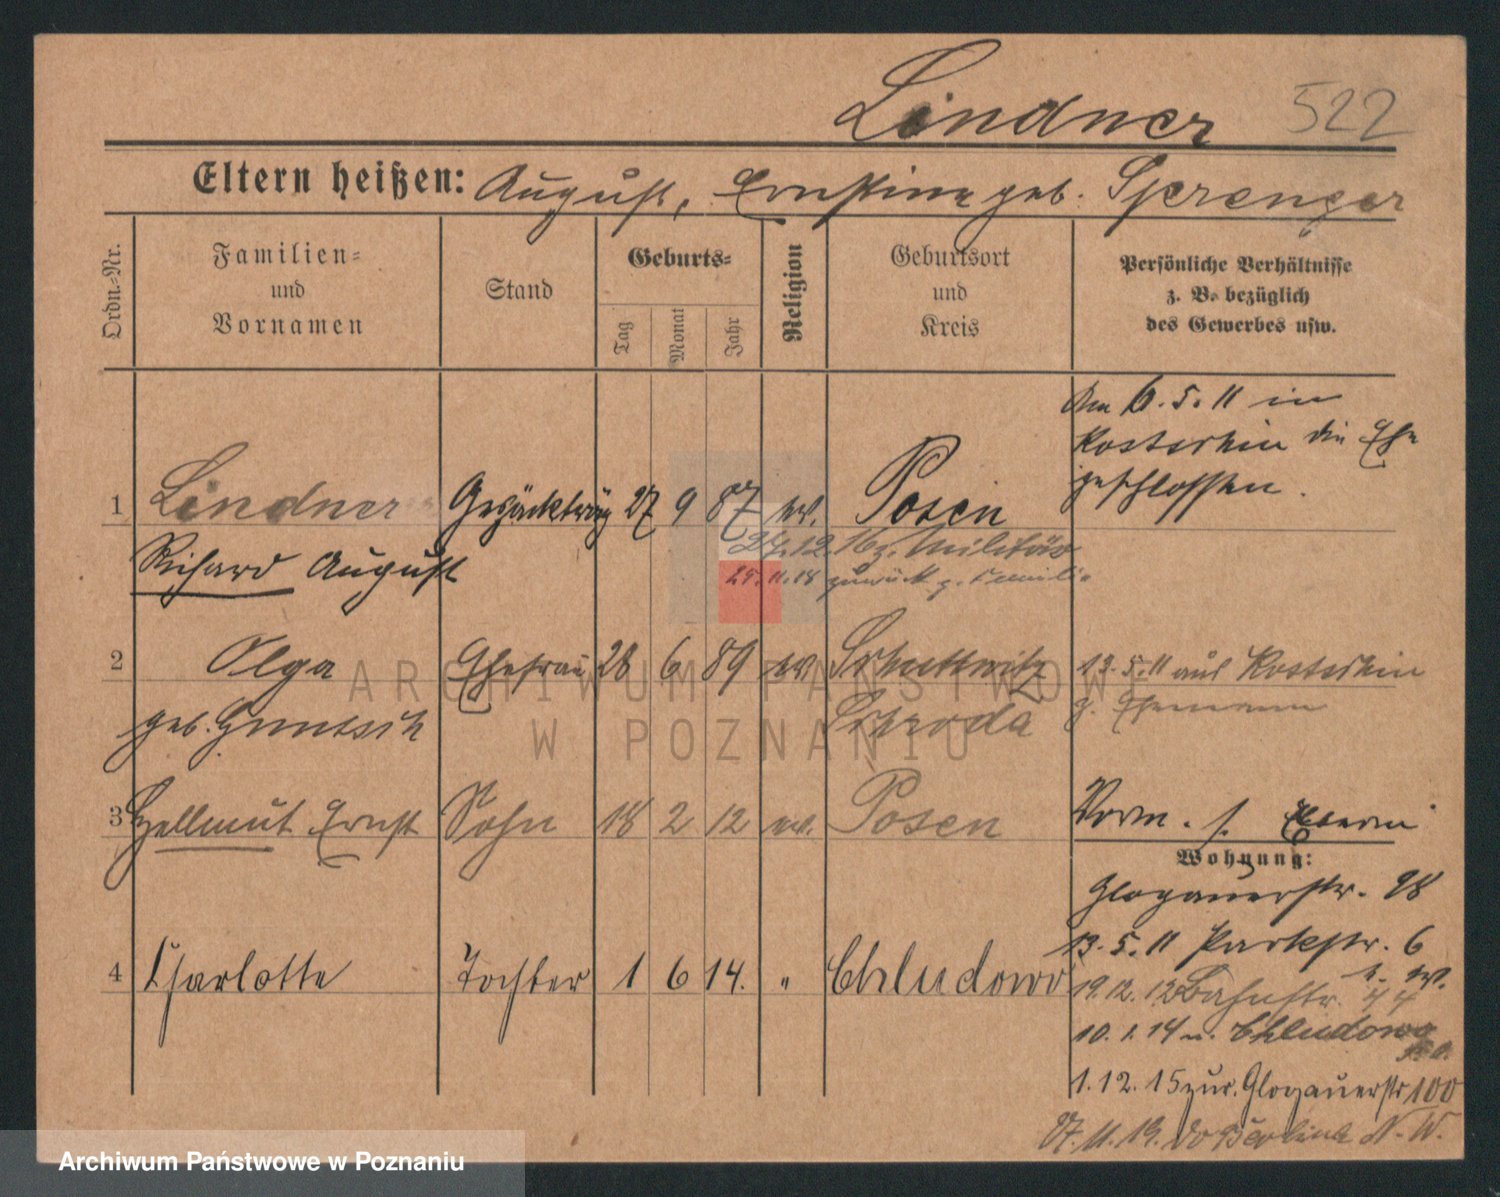 Lindner 522
Eltern heißen: August, Ernstine geb. Sprenger
Ordn.-Nr.
Familien-
und
Vornamen
Stand
Geburts-
Tag
Monat
Jahr
Religion
Geburtsort
und
Kreis
Persönliche Verhältnisse
z. B. bezüglich
des Gewerbes usw.
Am 6.5.11 in
Kostschin die Ehe
geschlossen.
1 Lindner Gepäckträg 27 9 87 ev. Posen
Richard August
27.12.16 z. Militär
25.11.18 zurück z. Famili
2 Olga Ehefrau 28 6 89 ev. 13.5.11 aus Kostschin
geb. Schroda z. Ehemann
3 Hellmut Ernst Sohn 18 2 12 ev. Posen
Vorm. s.
Wohnung:
Glogauerstr. 98
13.5.11 Parkstr. 6
4 Charlotte Tochter 1 6 14. " Chludowo
19.12. Bahnstr.
10.1.14 n. Chludowo
1.12.15 zur. Glogauerstr 100
27.11.19. Berlin N.W.
ARCHIWUM PAŃSTWOWE
W POZNANIU
Archiwum Państwowe w Poznaniu